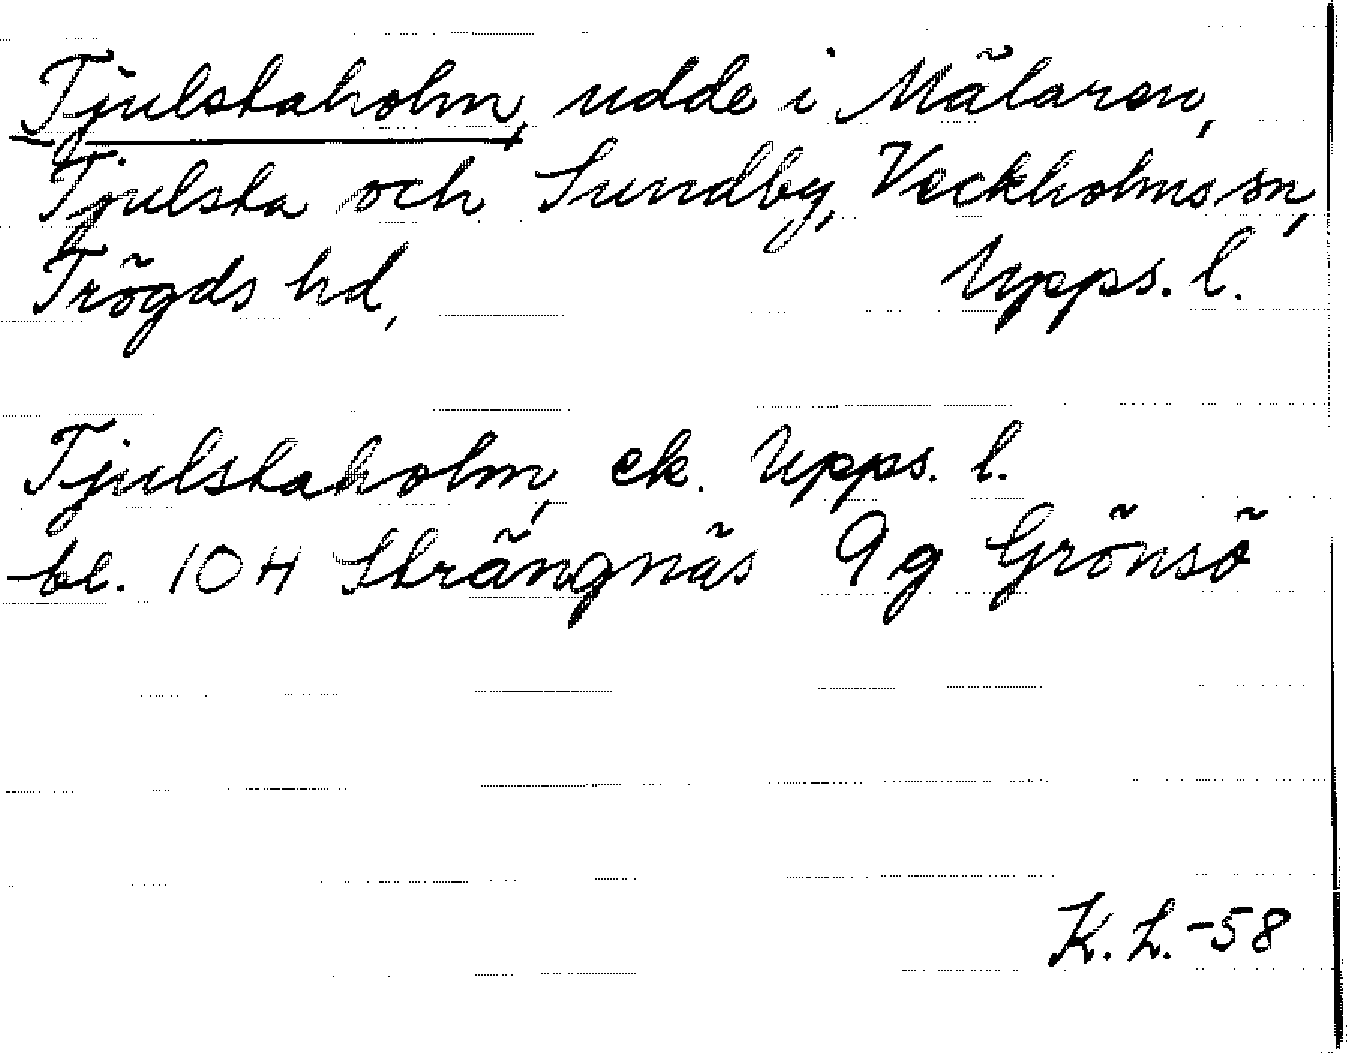 Tjulstaholm, udde i Mälaren,
Tjulsta och Sundby, Veckholms sn,
Trögds hd, Upps. l.
Tjulstaholm, ek. Upps. l.
bl. 10 H Strängnäs 9 g Grönsö
K. L. -58